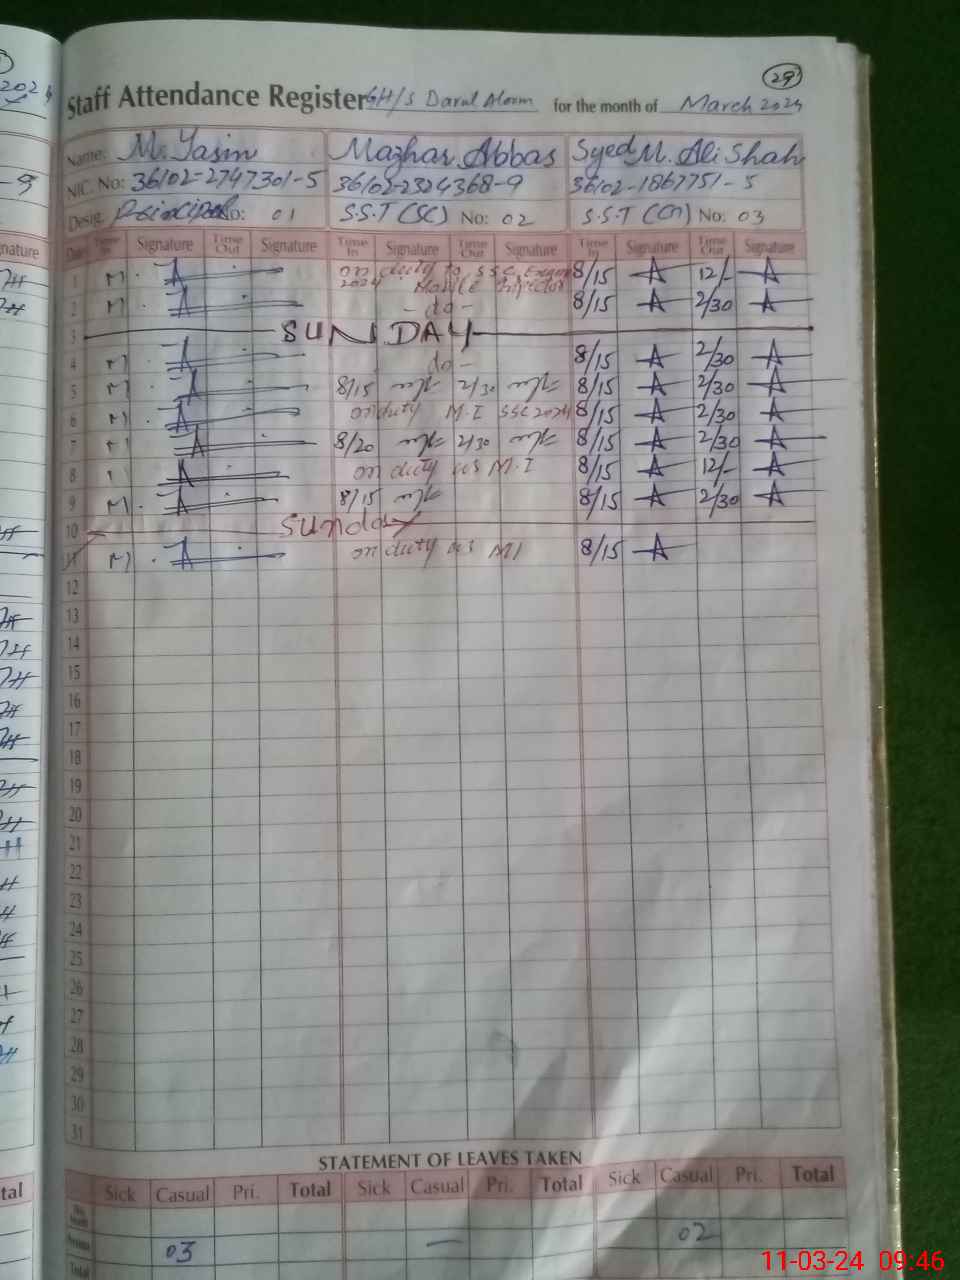 29
Staff Attendance Register GH/S Darul Aloom for the month of March 2024
Name: M. Yasin Mazhar Abbas Syed M. Ali Shah
NIC. No: 36102-2747301-5 36102-2324368-9 36102-1867751-5
Desig. Principal No: 01 S.S.T (SC) No: 02 S.S.T (Gn) No: 03
Date Time In Signature Time Out Signature Time In Signature Time Out Signature Time In Signature Time Out Signature
1 M on duty to SSC Exam 2024 Mobile Inspector 8/15 A 12/- A
2 M - do - 8/15 A 2/30 A
3 SUNDAY
4 M - do - 8/15 A 2/30 A
5 M 8/15 2/30 8/15 A 2/30 A
6 M on duty M.I SSC 2024 8/15 A 2/30 A
7 M 8/20 2/30 8/15 A 2/30 A
8 on duty as M.I 8/15 A 12/- A
9 M 8/15 8/15 A 2/30 A
10 Sunday
11 M on duty as MI 8/15 A
12
13
14
15
16
17
18
19
20
21
22
23
24
25
26
27
28
29
30
31
STATEMENT OF LEAVES TAKEN
Sick Casual Pri. Total Sick Casual Pri. Total Sick Casual Pri. Total
03 — 02
Total
11-03-24 09:46